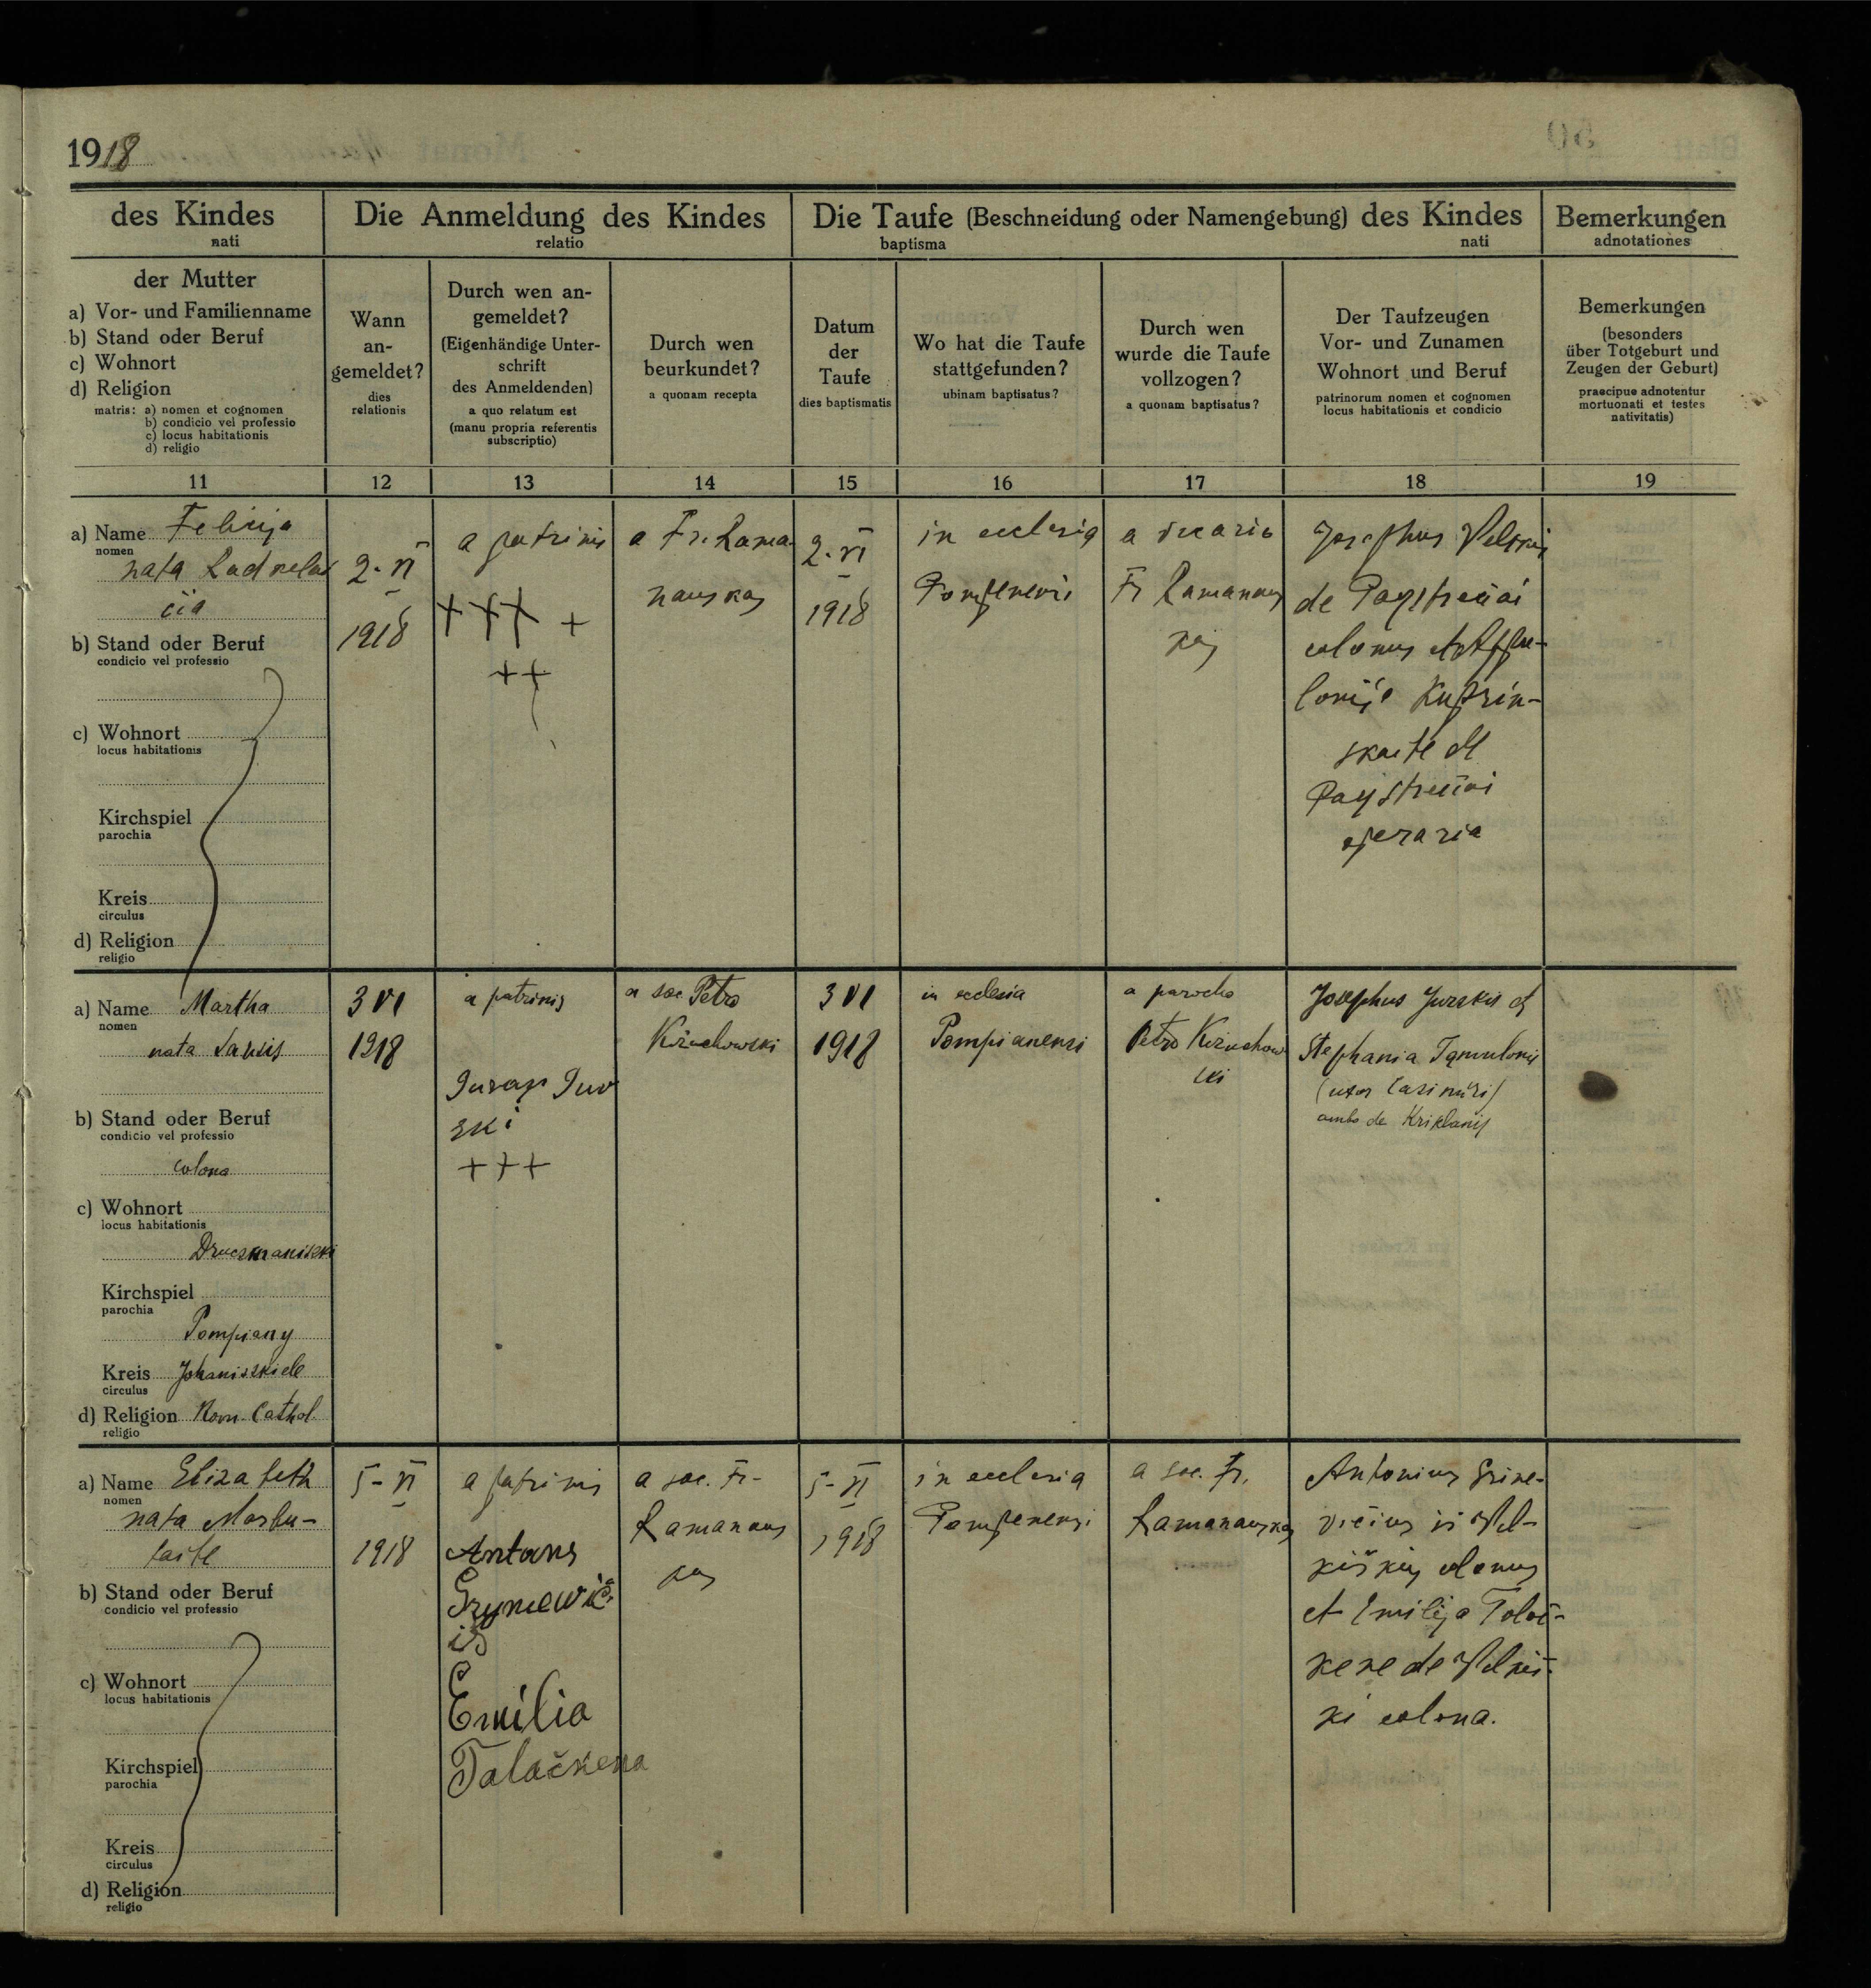 1918
des Kindes
nati
Die Anmeldung des Kindes
relatio
Die Taufe (Beschneidung oder Namengebung) des Kindes
baptisma nati
Bemerkungen
adnotationes
der Mutter
a) Vor- und Familienname
b) Stand oder Beruf
c) Wohnort
d) Religion
matris: a) nomen et cognomen
b) condicio vel professio
c) locus habitationis
d) religio
Wann
an-
gemeldet?
dies
relationis
Durch wen an-
gemeldet?
(Eigenhändige Unter-
schrift
des Anmeldenden)
a quo relatum est
(manu propria referentis
subscriptio)
Durch wen
beurkundet?
a quonam recepta
Datum
der
Taufe
dies baptismatis
Wo hat die Taufe
stattgefunden?
ubinam baptisatus?
Durch wen
wurde die Taufe
vollzogen?
a quonam baptisatus?
Der Taufzeugen
Vor- und Zunamen
Wohnort und Beruf
patrinorum nomen et cognomen
locus habitationis et condicio
Bemerkungen
(besonders
über Totgeburt und
Zeugen der Geburt)
praecipue adnotentur
mortuonati et testes
nativitatis)
11 12 13 14 15 16 17 18 19
a) Name Felicija
nomen
nata
čia
b) Stand oder Beruf
condicio vel professio
c) Wohnort
locus habitationis
Kirchspiel
parochia
Kreis
circulus
d) Religion
religio
2-VI
1918
a patrinis
+++ +
++
a Fr. Rama
nauskas
2-VI
1918
in ecclesia
Pompenensi
a vicario
Fr Ramanaus
kas
Josephus
de
colonus et
lonija Kuprin-
skaite de
operaria
a) Name Martha
nomen
nata
b) Stand oder Beruf
condicio vel professio
colona
c) Wohnort
locus habitationis
Kirchspiel
parochia
Pompiany
Kreis Johaniszkiele
circulus
d) Religion Rom. Cathol.
religio
3 VI
1918
a patrinis
ski
+++
a sac Petro
Kiruchowski
3 VI
1918
in ecclesia
Pompianensi
a parocho
Petro Kiruchow
ski
Josephus Jurskis et
Stephania
(uxor Casimiri)
ambo de
a) Name Elizabeth
nomen
nata
b) Stand oder Beruf
condicio vel professio
c) Wohnort
locus habitationis
Kirchspiel
parochia
Kreis
circulus
d) Religion
religio
5-VI
1918
a patrinis
Antans
Emilia
Talačkena
a sac. Fr-
Ramanaus
kas
5-VI
1918
in ecclesia
Pompenensi
a sac. Fr.
Ramanauskas
Antonius Grine-
vičius iš Vil-
kiškių colonus
et Emilija Taloč-
kene de Vilkiš-
ki colona.